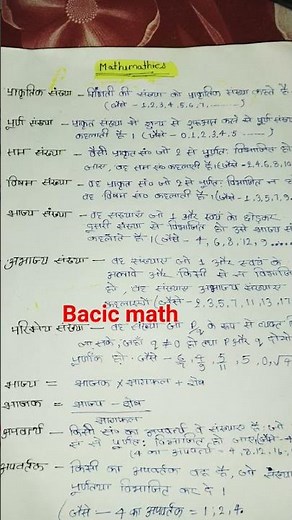 Mathumathics
प्राकृतिक संख्या - गिनती की संख्या को प्राकृतिक संख्या कहते हैं
(जैसे - 1,2,3,4,5,6,7,......)
पूर्ण संख्या - प्राकृत संख्या में शून्य से शुरुआत करने से पूर्ण संख्या
कहलाती है। (जैसे - 0,1,2,3,4,5 ......)
सम संख्या - वैसी प्राकृत सं० जो 2 से पूर्णतः विभाजित हो
जाए, वह सम सं० कहलाती है। (जैसे - 2,4,6,8,10
विषम संख्या - वह प्राकृत सं० जो 2 से पूर्णतः विभाजित न
वह विषम सं० कहलाती है। (जैसे - 1,3,5,7,9
भाज्य संख्या - वह संख्याएं जो 1 और स्वयं को छोड़कर
दूसरी संख्या से विभाजित हो उसे भाज्य सं
कहलाते हैं। (जैसे - 4, 6, 8, 12, 9 ....
अभाज्य संख्या - वह संख्याएं जो 1 और स्वयं के
अलावे और किसी से न विभाजि
हो, वह संख्याएं अभाज्य संख्याएं
कहलाएगी (जैसे - 2,3,5,7,11,13,17
Bacic math
परिमेय संख्या - वह संख्या जो P/q के रूप में व्यक्त
जा सके, जहाँ q ≠ 0 हो तथा P और q दोनों
पूर्णांक हो। जैसे -
भाज्य = भाजक × भागफल + शेष
भाजक = भाज्य - शेष
भागफल
अपवर्त्य - किसी सं० का अपवर्त्य वे संख्याएं हैं, जो
सं से पूर्णतः विभाजित हो जाए (जैसे - 4
(4 का अपवर्त्य - 4,8,12,16,
अपवर्तक - किसी का अपवर्तक वह है, जो संख्या
पूर्णतया विभाजित कर दे।
(जैसे - 4 का अपवर्तक = 1,2,4.